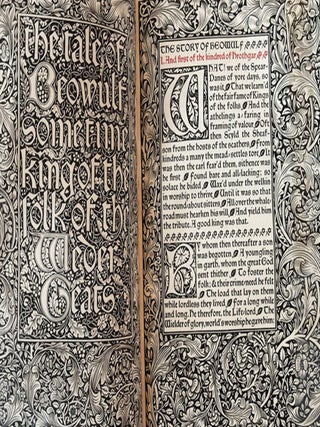 The tale of
Beowulf
sometime
king of the
folk of the
Weder
Geats
THE STORY OF BEOWULF
I. And first of the kindred of Hrothgar.
WHAT! we of the Spear-
Danes of yore days, so
was it That we learn'd
of the fair fame of kings
of the folks And the
athelings a-faring in
framing of valour. Oft
then Scyld the Sheaf-
son from the hosts of the scathers, From
kindreds a many the mead-settles tore; It
was then the earl fear'd them, sithence was
he first found bare and all-lacking; so
solace he bided, Wax'd under the welkin
in worship to thrive, Until it was so that
the round-about sitters All over the whale-
road must hearken his will And yield him
the tribute. A good king was that.
By whom then thereafter a son
was begotten, A youngling
in garth, whom the great God
sent thither To foster the
folk; & their crime-need he felt
The load that lay on them
while lordless they lived For a long while
and long. He therefore, the Life-lord, The
Wielder of glory, world's worship he gave him: